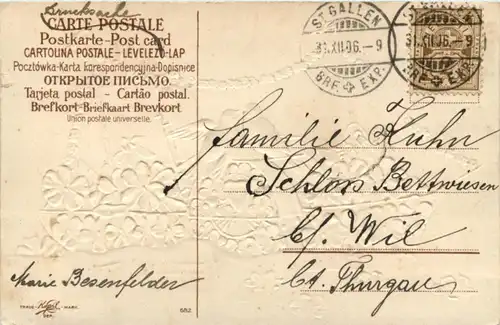 Drucksache
CARTE POSTALE
Postkarte-Post card
CARTOLINA POSTALE-LEVELEZŐ-LAP
Pocztówka-Karta korespondencyjna-Dopisnice
ОТКРЫТОЕ ПИСЬМО.
Tarjeta postal - Cartão postal.
Brefkort-Briefkaart Brevkort.
Union postale universelle.
ST GALLEN
31.XII.06.-9
BRF. EXP.
ST GALLEN
31.XII.06.-9
BRF. EXP.
Familie Kuhn
Schloss Bettwiesen
b/ Wil
Ct. Thurgau
Marie Besenfelder
TRADE MARK.
DEP.
682